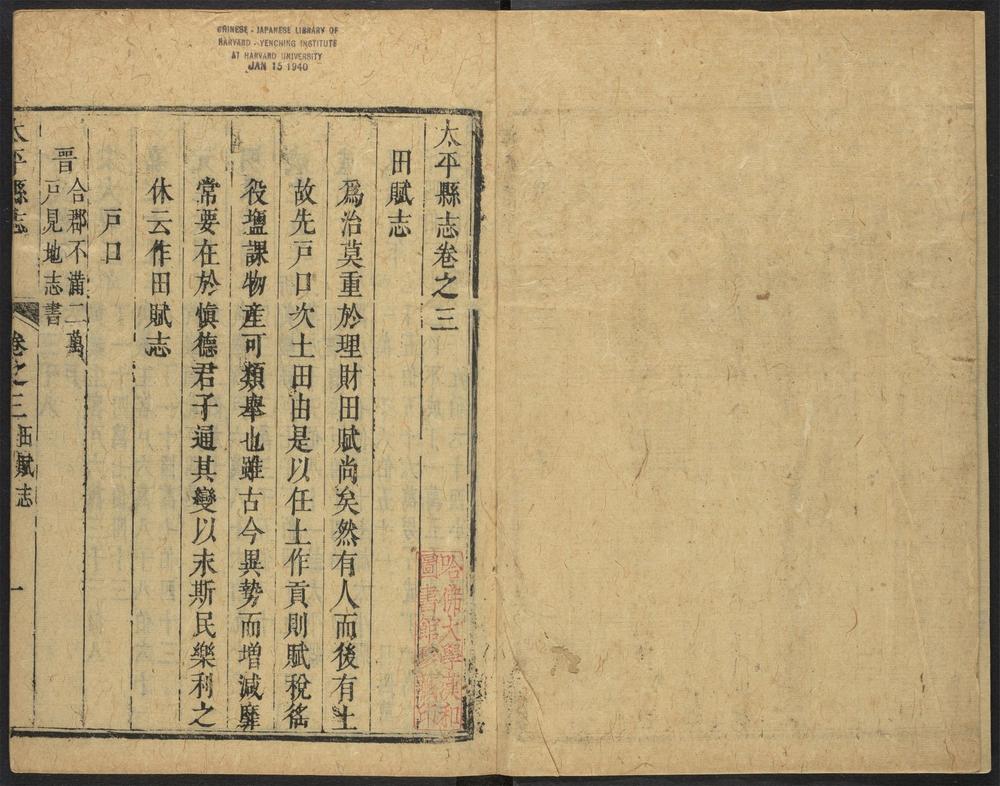 CHINESE - JAPANESE LIBRARY OF
HARVARD - YENCHING INSTITUTE
AT HARVARD UNIVERSITY
JAN 15 1940
太平縣志卷之三
田賦志
爲治莫重於理財田賦尚矣然有人而後有土
故先戸口次土田由是以任土作貢則賦稅徭
役塩課物産可類舉也雖古今異勢而增減靡
常要在於愼德君子通其變以求斯民樂利之
休云作田賦志
戸口
晋
合郡不滿二萬
戸見地志書
太平縣志
卷之三
田賦志
一
哈佛大學漢和
圖書館珍藏印